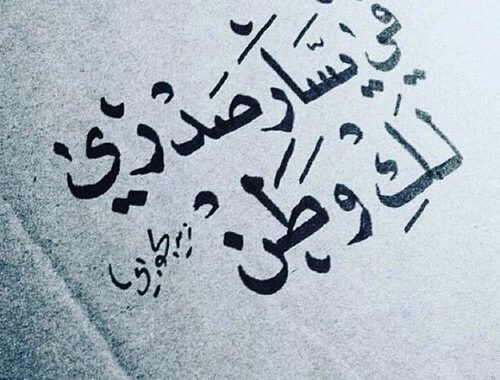 في يَسَّارَ صَدْرِي
لَكِ وَطَنْ